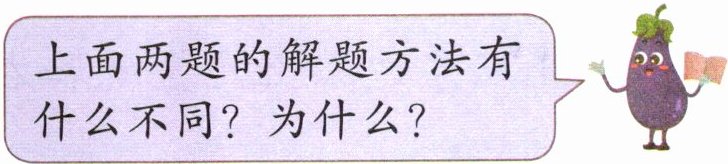 上面两题的解题方法有
什么不同？为什么？